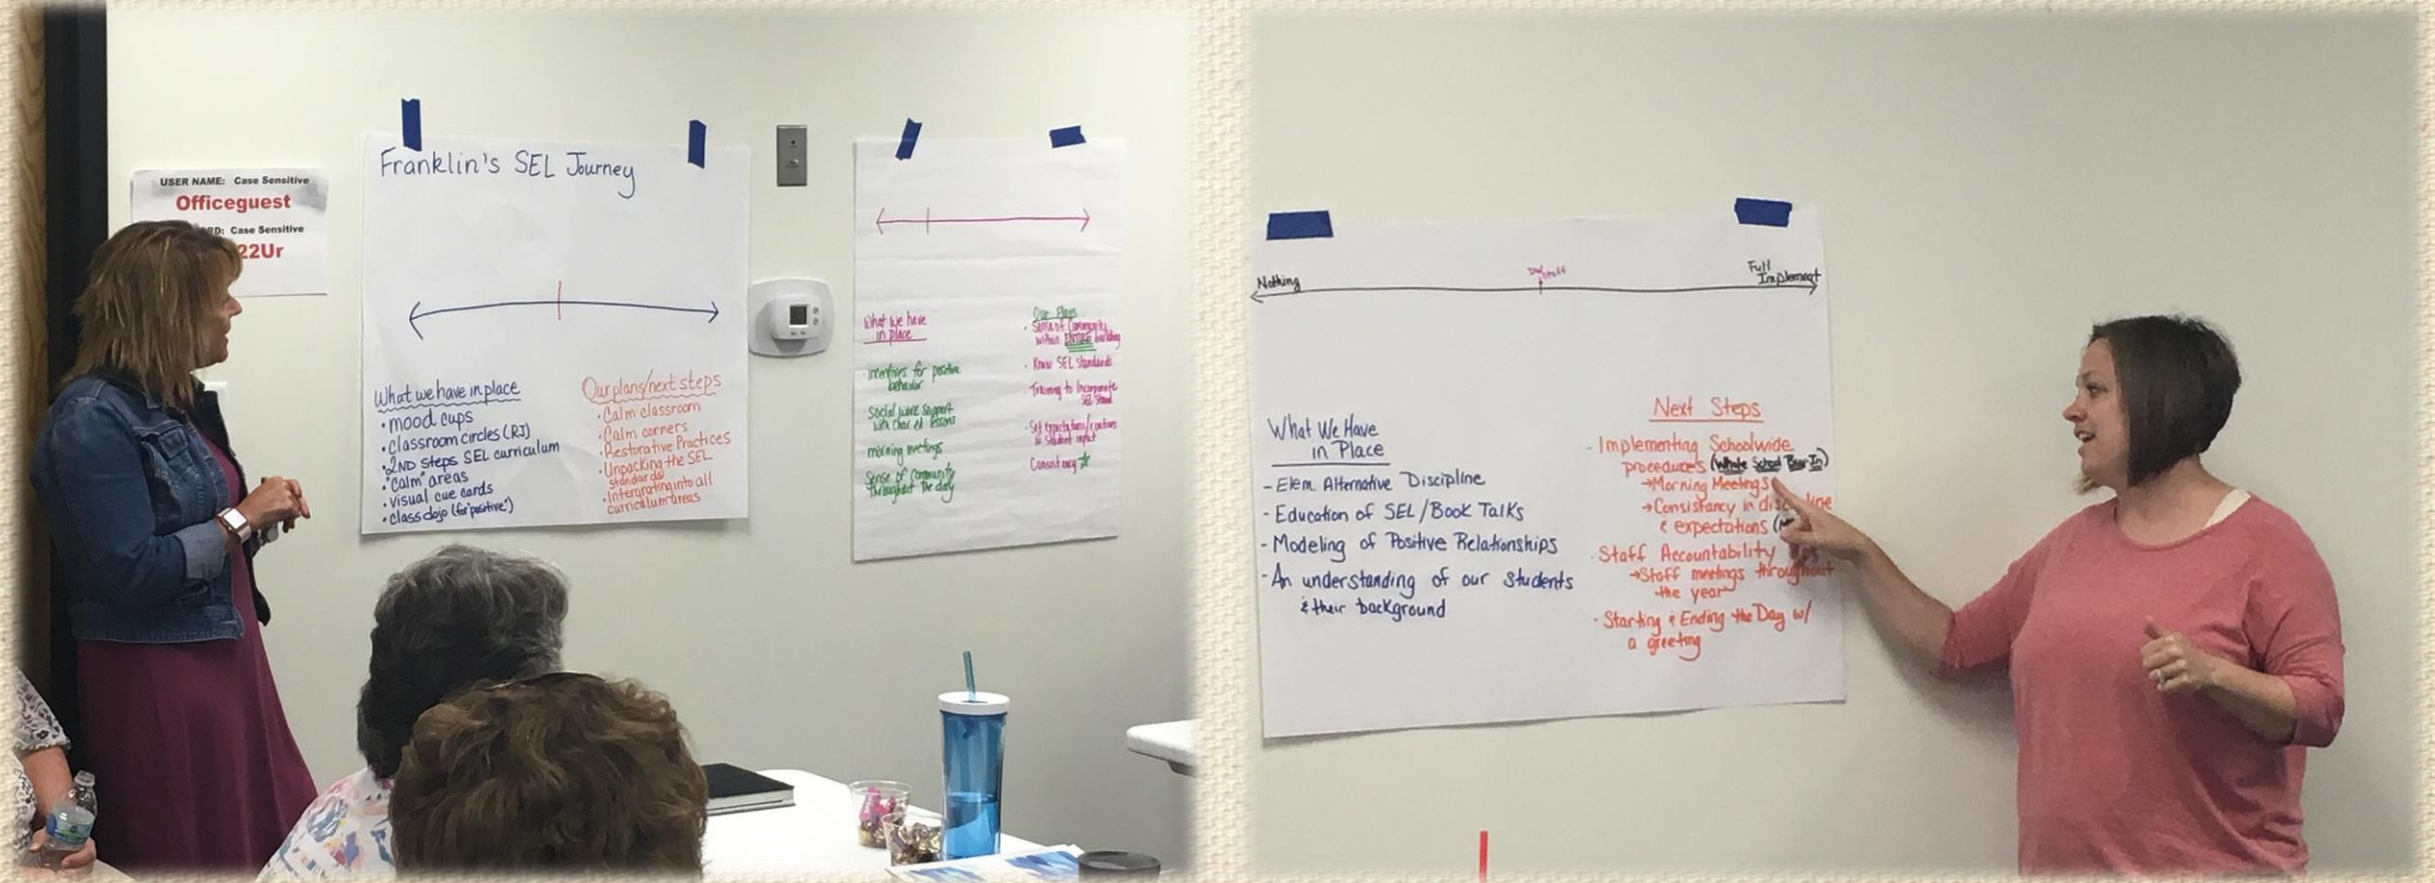 USER NAME: Case Sensitive
Officeguest
RD: Case Sensitive
22Ur
Franklin's SEL Journey
What we have in place
• mood cups
• classroom circles (RJ)
• 2ND Steps SEL curriculum
• "calm" areas
• visual cue cards
• class dojo (for "positive")
Our plans/next steps
• Calm classroom
• Calm corners
• Restorative Practices
• Unpacking the SEL
standards
• Intergrating into all
curriculum areas
What we have
in place
• incentives for positive
behavior
social work support
with char. ed lessons
morning meetings
Sense of community
throughout the day
Our Plans
• Sense of Community
within ENTIRE building
• Know SEL Standards
• Training to Incorporate
SEL
• Set expectations/routines
student input
Consistency
Nothing
Full
Implement
What We Have
in Place
- Elem Alternative Discipline
- Education of SEL/Book Talks
- Modeling of Positive Relationships
- An understanding of our students
& their background
Next Steps
- Implementing Schoolwide
procedures (Whole School Buy-In)
→ Morning Meetings
→ Consistancy in discipline
& expectations
- Staff Accountability
→ Staff meetings throughout
the year
- Starting & Ending the Day w/
a greeting